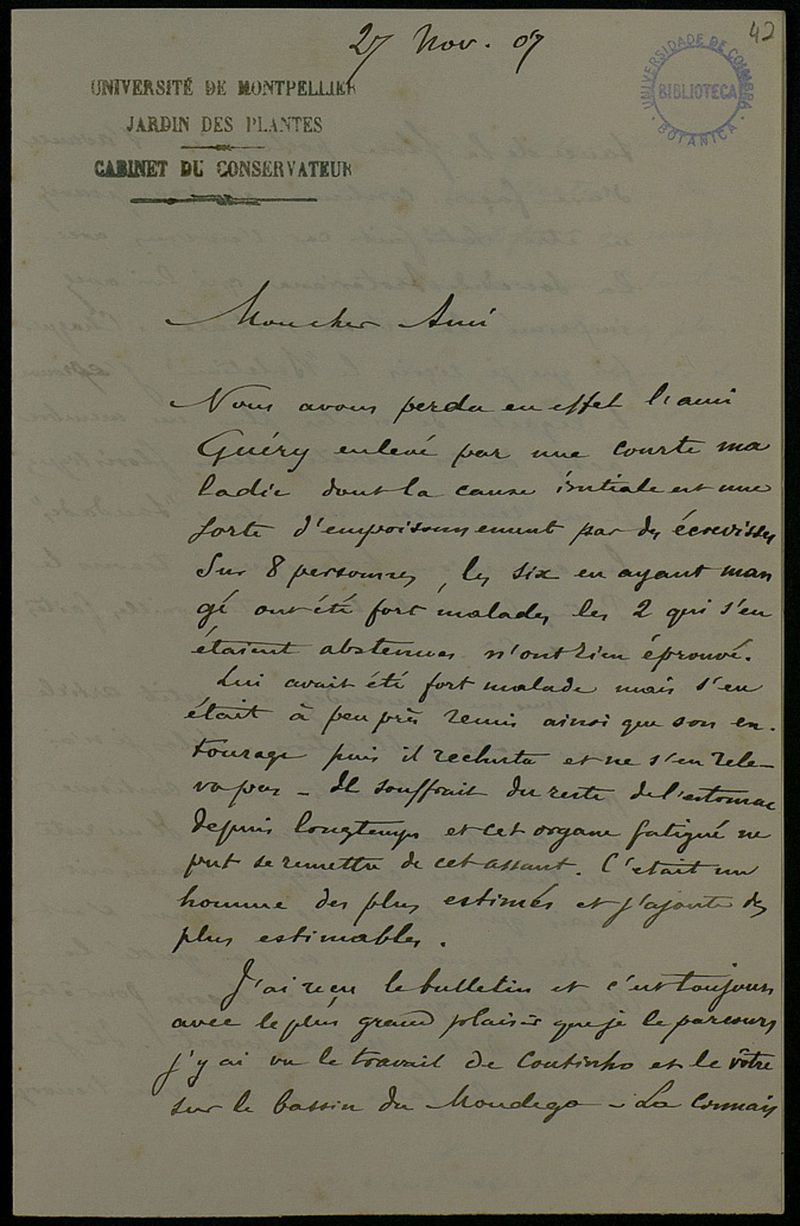 42
27 Nov. 07
UNIVERSITÉ DE MONTPELLIER
JARDIN DES PLANTES
CABINET DU CONSERVATEUR
UNIVERSIDADE DE COIMBRA
BIBLIOTECA
BOTANICA
Mon cher Ami
Nous avons perdu en effet l'ami
Guéry enlevé par une courte ma
ladie dont la cause initiale est une
sorte d'empoisonnement par des écrevisses
Sur 8 personnes, les six en ayant man
gé ont été fort malades les 2 qui s'en
étaient abstenues n'ont rien éprouvé.
Lui avait été fort malade mais s'en
était à peu près remis ainsi que son en-
tourage puis il rechuta et ne s'en rele-
va pas - Il souffrait du reste de l'estomac
depuis longtemps et cet organe fatigué ne
put se remettre de cet assaut. C'était un
homme des plus estimés et j'ajoute des
plus estimables.
J'ai reçu le bulletin et c'est toujours
avec le plus grand plaisir que je le parcours
j'y ai vu le travail de Coutinho et le vôtre
sur le bassin du Mondego - La connais